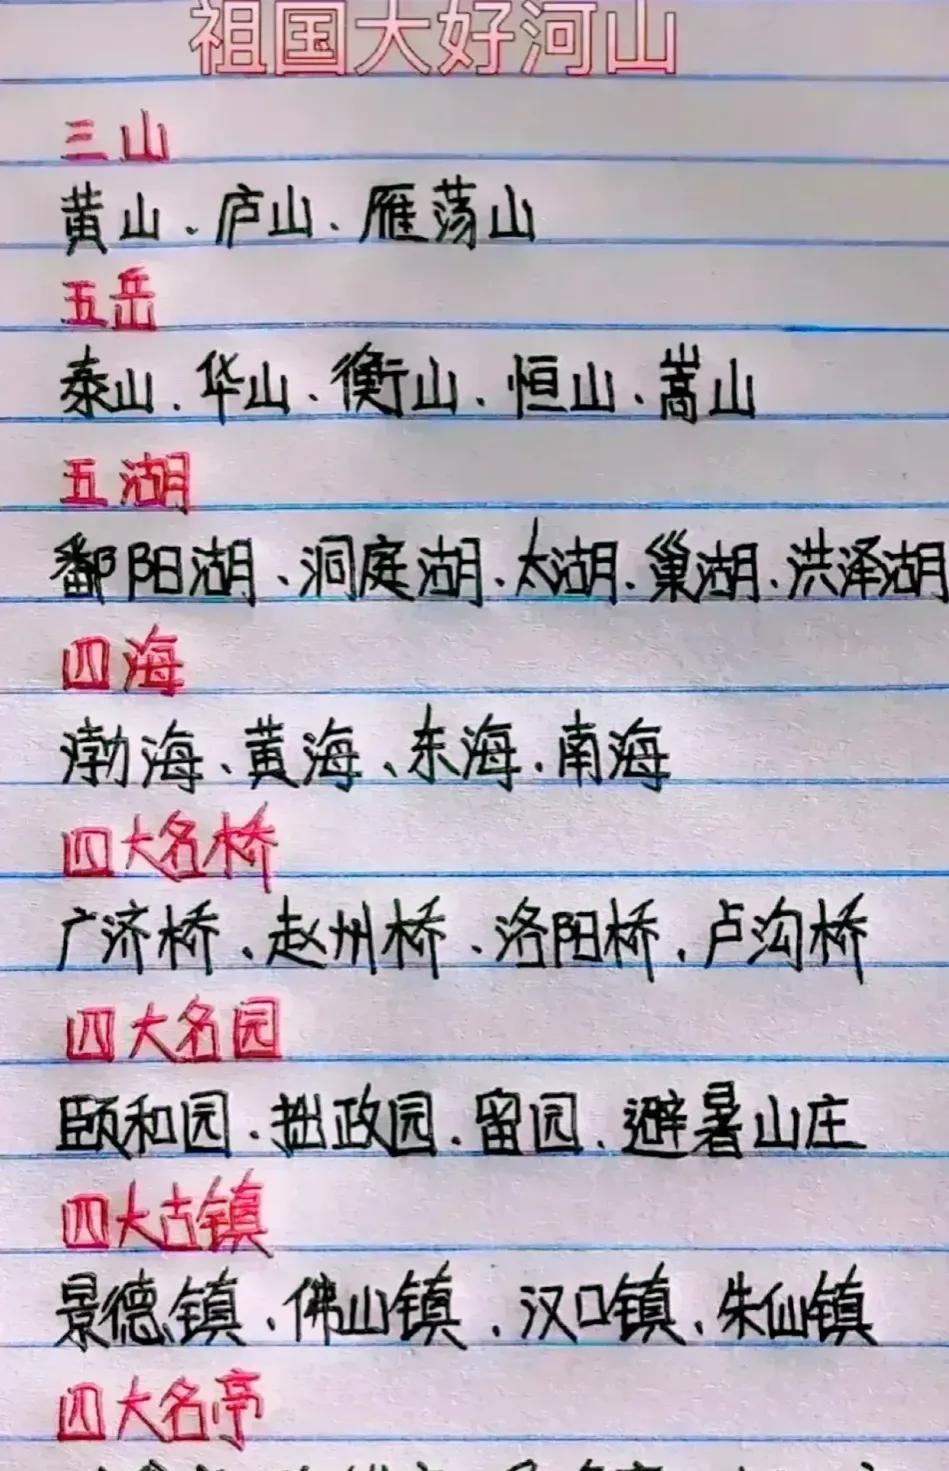 祖国大好河山
三山
黄山、庐山、雁荡山
五岳
泰山、华山、衡山、恒山、嵩山
五湖
鄱阳湖、洞庭湖、太湖、巢湖、洪泽湖
四海
渤海、黄海、东海、南海
四大名桥
广济桥、赵州桥、洛阳桥、卢沟桥
四大名园
颐和园、拙政园、留园、避暑山庄
四大古镇
景德镇、佛山镇、汉口镇、朱仙镇
四大名亭